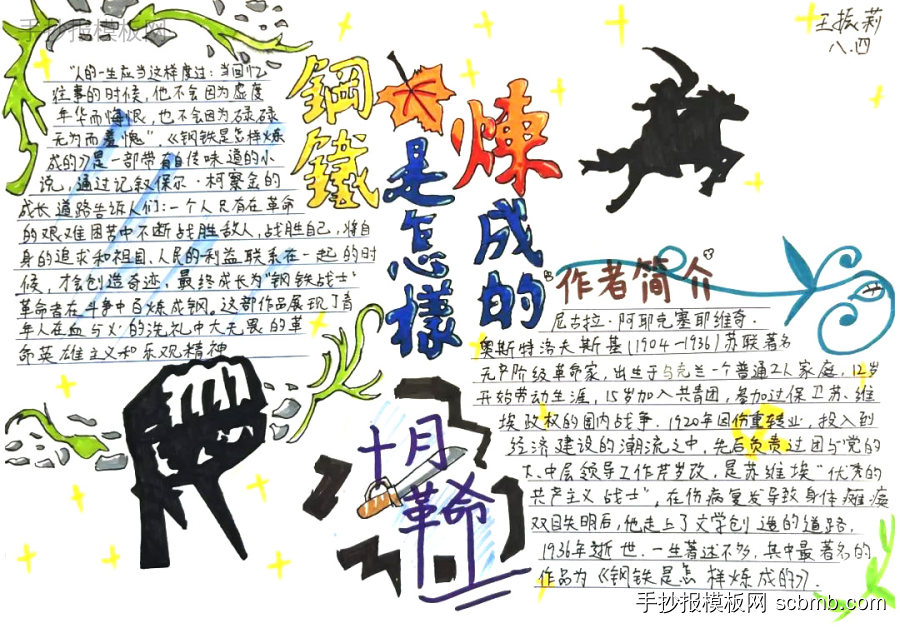 手抄报模板网
王振莉
八.四
鋼鐵是怎樣煉成的
"人的一生应当这样度过：当回忆
往事的时候，他不会因为虚度
年华而悔恨，也不会因为碌碌
无为而羞愧"．《钢铁是怎样炼
成的》是一部带有自传味道的小
说，通过记叙保尔·柯察金的
成长道路告诉人们：一个人只有在革命
的艰难困苦中不断战胜敌人，战胜自己，将自
身的追求和祖国、人民的利益联系在一起的时
候，才会创造奇迹，最终成长为"钢铁战士"
革命者在斗争中百炼成钢。这部作品展现了青
年人在血与火的洗礼中大无畏的革
命英雄主义和乐观精神
作者简介
尼古拉·阿耶克塞耶维奇．
奥斯特洛夫斯基(1904—1936)苏联著名
无产阶级革命家，出生于乌克兰一个普通工人家庭，12岁
开始劳动生涯，15岁加入共青团，参加过保卫苏、维
埃政权的国内战争．1920年因伤重转业，投入到
经济建设的潮流之中，先后负责过团与党的
下、中层领导工作
是苏维埃"优秀的
共产主义战士"，在伤病复发导致身体瘫痪
双目失明后，他走上了文学创造的道路．
1936年逝世．一生著述不多，其中最著名的
作品为《钢铁是怎样炼成的》．
十月
革命
手抄报模板网 scbmb.com